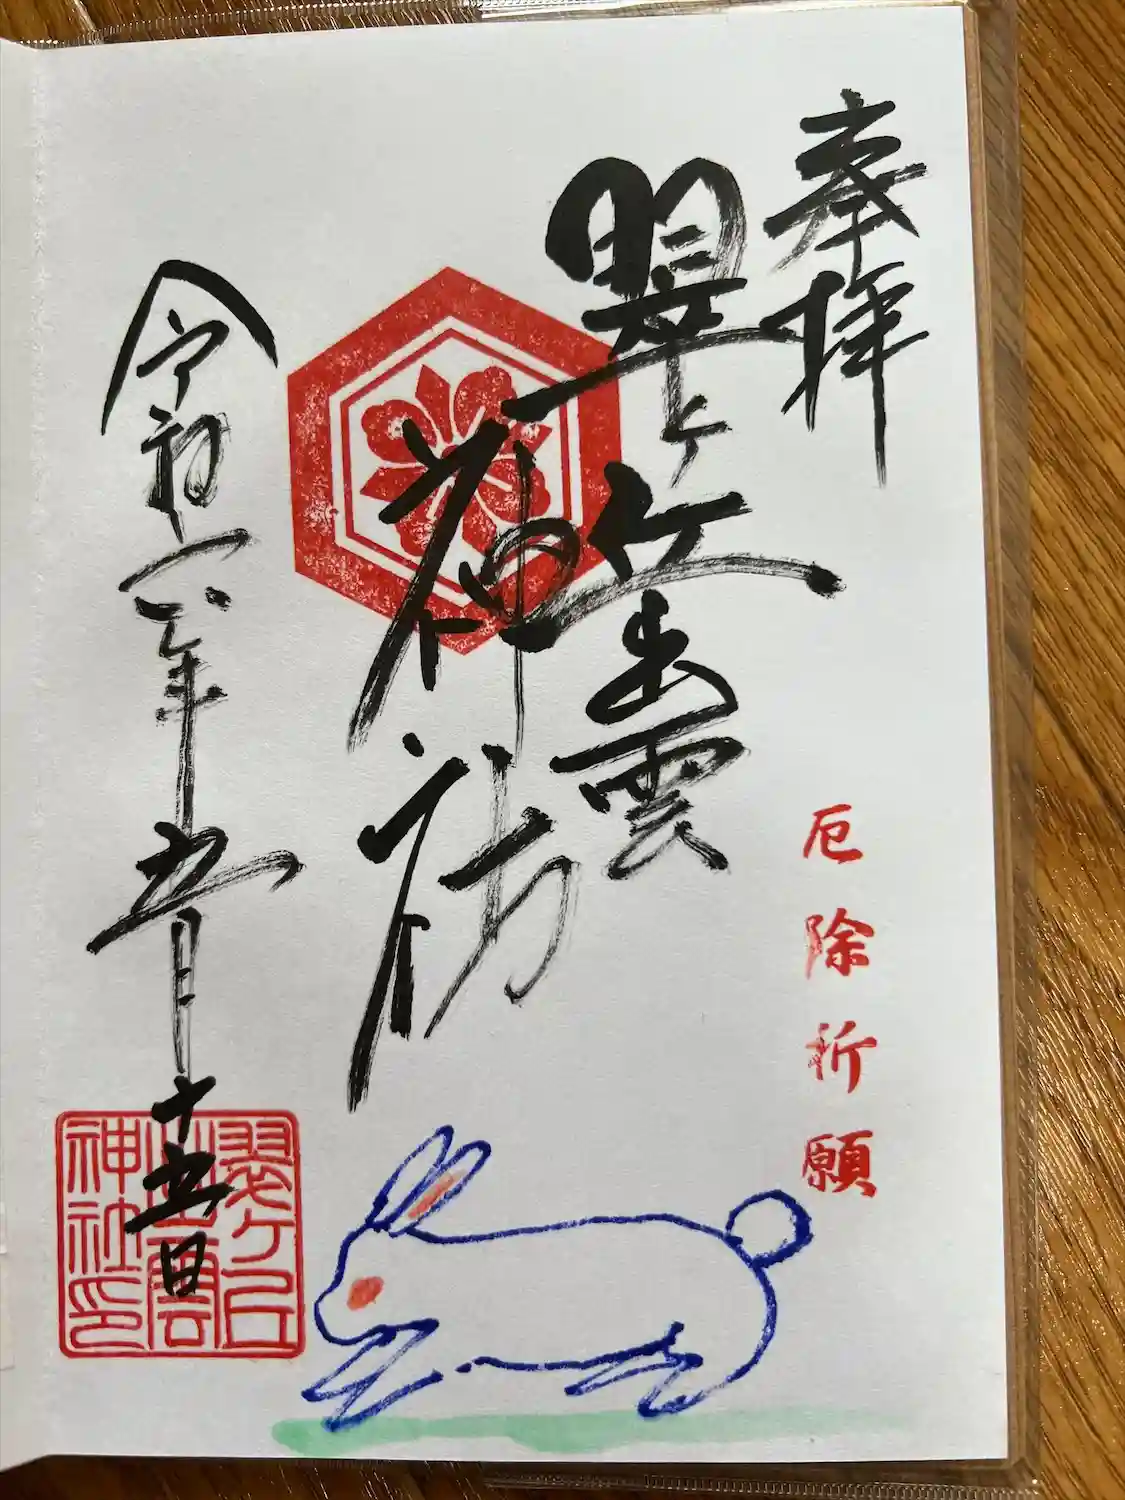 奉拝
厄除祈願
翠ヶ丘出雲
神社
令和六年五月十五日
翠ヶ丘
出雲
神社印